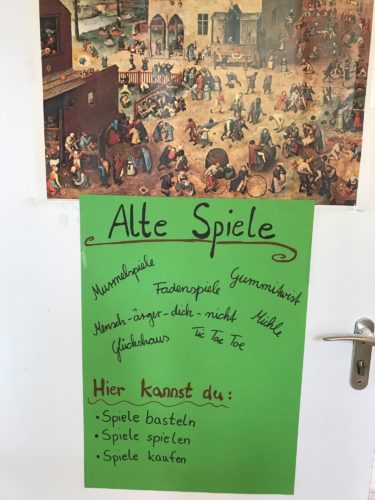 Alte Spiele
Murmelspiele
Fadenspiele
Gummitwist
Mensch-ärger-dich-nicht
Mühle
Glückshaus
Tic Tac Toe
Hier kannst du:
• Spiele basteln
• Spiele spielen
• Spiele kaufen